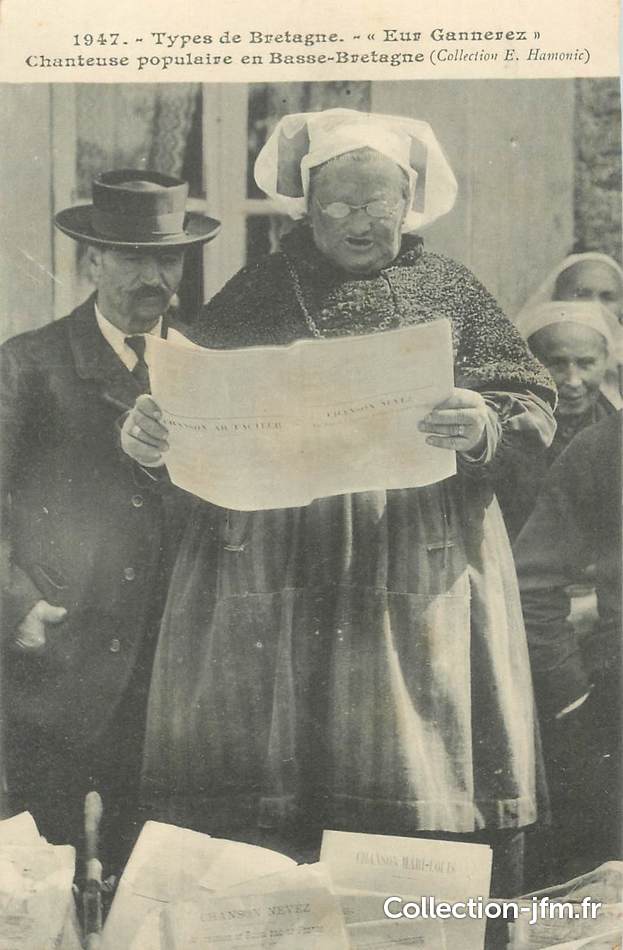 1947. - Types de Bretagne. - « Eur Gannerez »
Chanteuse populaire en Basse-Bretagne (Collection E. Hamonic)
CHANSON AR FACTEUR
CHANSON NEVEZ
CHANSON MARI-LOUIS
CHANSON NEVEZ
Collection-jfm.fr